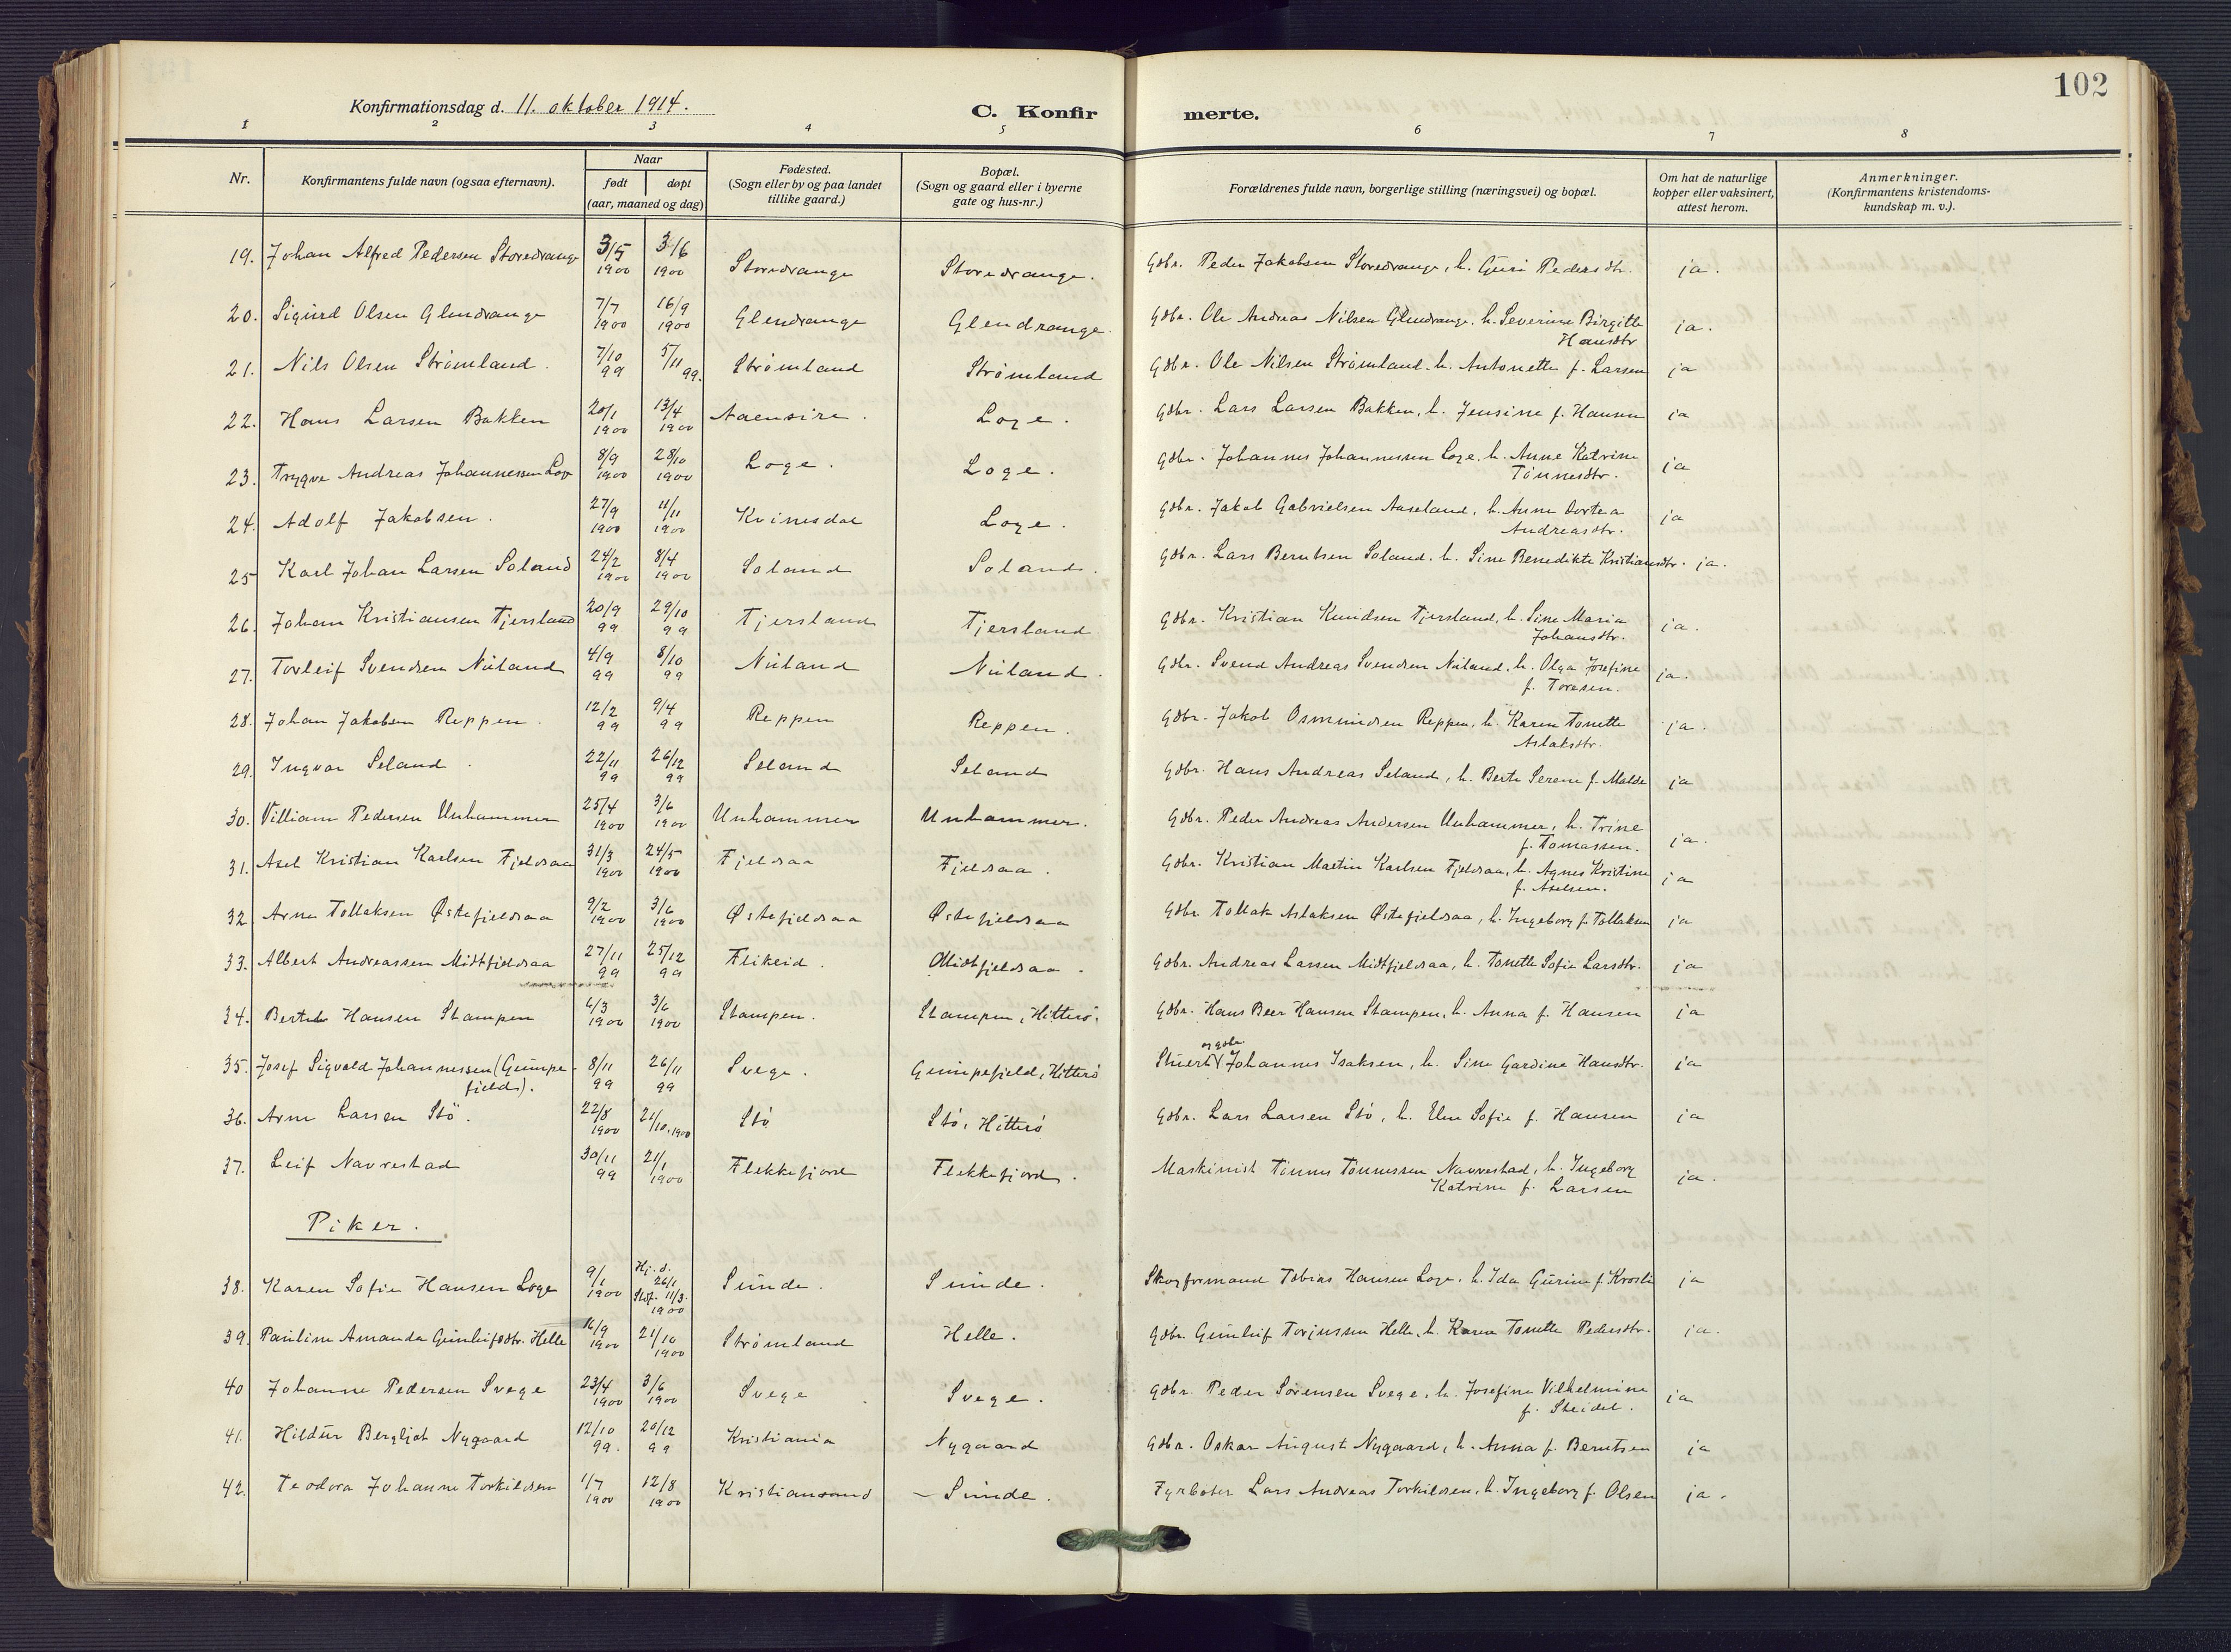 102
Konfirmationsdag d. 11. oktober 1914.
C. Konfir merte.
1 2 3 4 5 6 7 8
Nr. Konfirmantens fulde navn (ogsaa efternavn). Naar født døpt (aar, maaned og dag) Fødested. (Sogn eller by og paa landet tillike gaard.) Bopæl. (Sogn og gaard eller i byerne gate og hus-nr.) Forældrenes fulde navn, borgerlige stilling (næringsvei) og bopæl. Om hat de naturlige kopper eller vaksinert, attest herom. Anmerkninger. (Konfirmantens kristendoms- kundskap m. v.).
19. Johan Alfred Pedersen Storedrange 3/5 1900 3/6 1900 Storedrange Storedrange. Gdbr. Peder Jakobsen Storedrange, h. Guri Pedersdtr. ja.
20. Sigurd Olsen Glendrange 7/7 1900 16/9 1900 Glendrange Glendrange. Gdbr. Ole Andreas Nilsen Glendrange. h. Severine Birgitte Hansdtr ja.
21. Nils Olsen Strømland. 7/10 99 5/11 99. Strømland Strømland Gdbr. Ole Nilsen Strømland. h. Antonette f. Larsen ja
22. Hans Larsen Bakken 20/1 1900 13/4 1900 Aaensire. Loge. Gdbr. Lars Larsen Bakken, h. Jensine f. Hansen ja
23. Trygve Andreas Johannessen Loge 8/9 1900 28/10 1900 Loge. Loge. Gdbr. Johannes Johannessen Loge. h. Anne Katrine Tønnesdtr. ja
24. Adolf Jakobsen. 27/9 1900 11/11 1900 Kvinesdal Loge. Gdbr. Jakob Gabrielsen Aaseland, h. Anne Dortea Andreasdtr. ja
25 Karl Johan Larsen Soland 24/2 1900 8/4 1900 Soland Soland. Gdbr. Lars Berntsen Soland. h. Sine Benedikte Kristiansdtr. ja.
26. Johan Kristiansen Tjersland 20/9 99 29/10 99 Tjersland Tjersland Gdbr. Kristian Knudsen Tjersland, h. Sine Maria Johansdtr. ja.
27. Torleif Svendsen Nuland 4/9 99 8/10 99 Nuland Nuland. Gdbr. Svend Andreas Svendsen Nuland, h. Olga Josefine f. Toresen. ja.
28. Johan Jakobsen Reppen. 12/2 99 9/4 99 Reppen Reppen. Gdbr. Jakob Osmundsen Reppen, h. Karen Tonette Aslaksdtr. ja.
29. Ingvar Seland. 22/11 99 26/12 99 Seland Seland Gdbr. Hans Andreas Seland, h. Berte Serene f. Malde ja
30. Villiam Pedersen Unhammer 25/4 1900 3/6 1900 Unhammer Unhammer. Gdbr. Peder Andreas Andersen Unhammer, h. Trine f. Tomassen. ja.
31. Axel Kristian Karlsen Fjeldsaa 31/3 1900 24/5 1900 Fjeldsaa Fjeldsaa. Gdbr. Kristian Martin Karlsen Fjeldsaa, h. Agnes Kristine f. Axelsen. ja
32. Arne Tollaksen Østefjeldsaa 9/2 1900 3/6 1900 Østefjeldsaa Østefjeldsaa Gdbr. Tollak Aslaksen Østefjeldsaa, h. Ingeborg f. Tollaksen ja
33. Albert Andreassen Midtfjeldsaa 27/11 99 25/12 99 Flikeid. Midtfjeldsaa. Gdbr. Andreas Larsen Midtfjeldsaa, h. Tonette Sofie Larsdtr. ja
34. Bertel Hansen Stampen 4/3 1900 3/6 1900 Stampen. Stampen, Hitterø. Gdbr. Hans Beer Hansen Stampen, h. Anna f. Hansen ja
35. Josef Sigvald Johannessen (Gumpe- fjeld). 8/11 99 26/11 99 Svege. Gumpefjeld, Hitterø Stuert og gdbr. Johannes Isaksen, h. Sine Gardine Hansdtr. ja
36. Arne Larsen Stø. 22/8 1900 21/10, 1900 Stø Stø, Hitterø Gdbr. Lars Larsen Stø, h. Elne Sofie f. Hansen ja
37. Leif Navrestad 30/11 99 21/1 1900 Flekkefjord Flekkefjord. Maskinist Tønnes Tønnessen Navrestad, h. Ingeborg Katrine f. Larsen ja.
Piker.
38. Karen Sofie Hansen Loge 9/1 1900 Hj. d. 26/1 Stdf. 11/3. 1900 Sunde. Sunde. Skogformand Tobias Hansen Loge. h. Ida Gurine f. Krosli ja
39. Pauline Amanda Gunleifsdtr. Helle 16/9 1900 21/10 1900 Strømland Helle. Gdbr. Gunleif Torjussen Helle, h. Karen Tonette Pedersdtr. ja.
40 Johanne Pedersen Svege 23/4 1900 3/6 1900 Svege Svege. Gdbr. Peder Sørensen Svege, h. Josefine Vilhelmine f. Steidel. ja
41. Hildur Bergljot Nygaard 12/10 99. 20/12 99 Kristiania Nygaard Gdbr. Oskar August Nygaard, h. Anna f. Berntsen ja
42. Teodora Johanne Torkildsen 1/7 1900 12/8 1900 Kristiansand - Sunde. Fyrbøter Lars Andreas Torkildsen, h. Ingeborg f. Olsen ja.